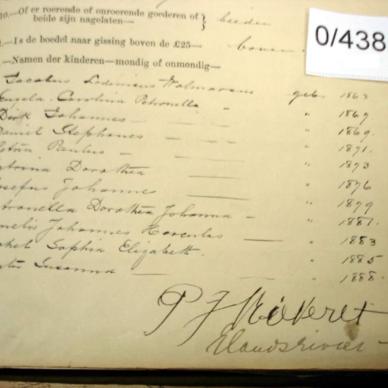 10.—Of er roerende of onroerende goederen of
beide zijn nagelaten— } beiden
0/438
—Is de boedel naar gissing boven de £25—
—Namen der kinderen—mondig of onmondig—
Jacobus Lodewicus Wolmarans geb. 1863
Engela Carolina Petronella " 1867
Dirk Johannes " 1869.
Daniel Stephanus " 1871.
Paulus " 1873
Dorothea " 1876
Josefus Johannes " 1879
Petronella Dorothea Johanna " 1881.
Cornelis Johannes Hercules " 1883
Sophia Elizabeth " 1885
Susanna 1888.
P J
Elandsrivier